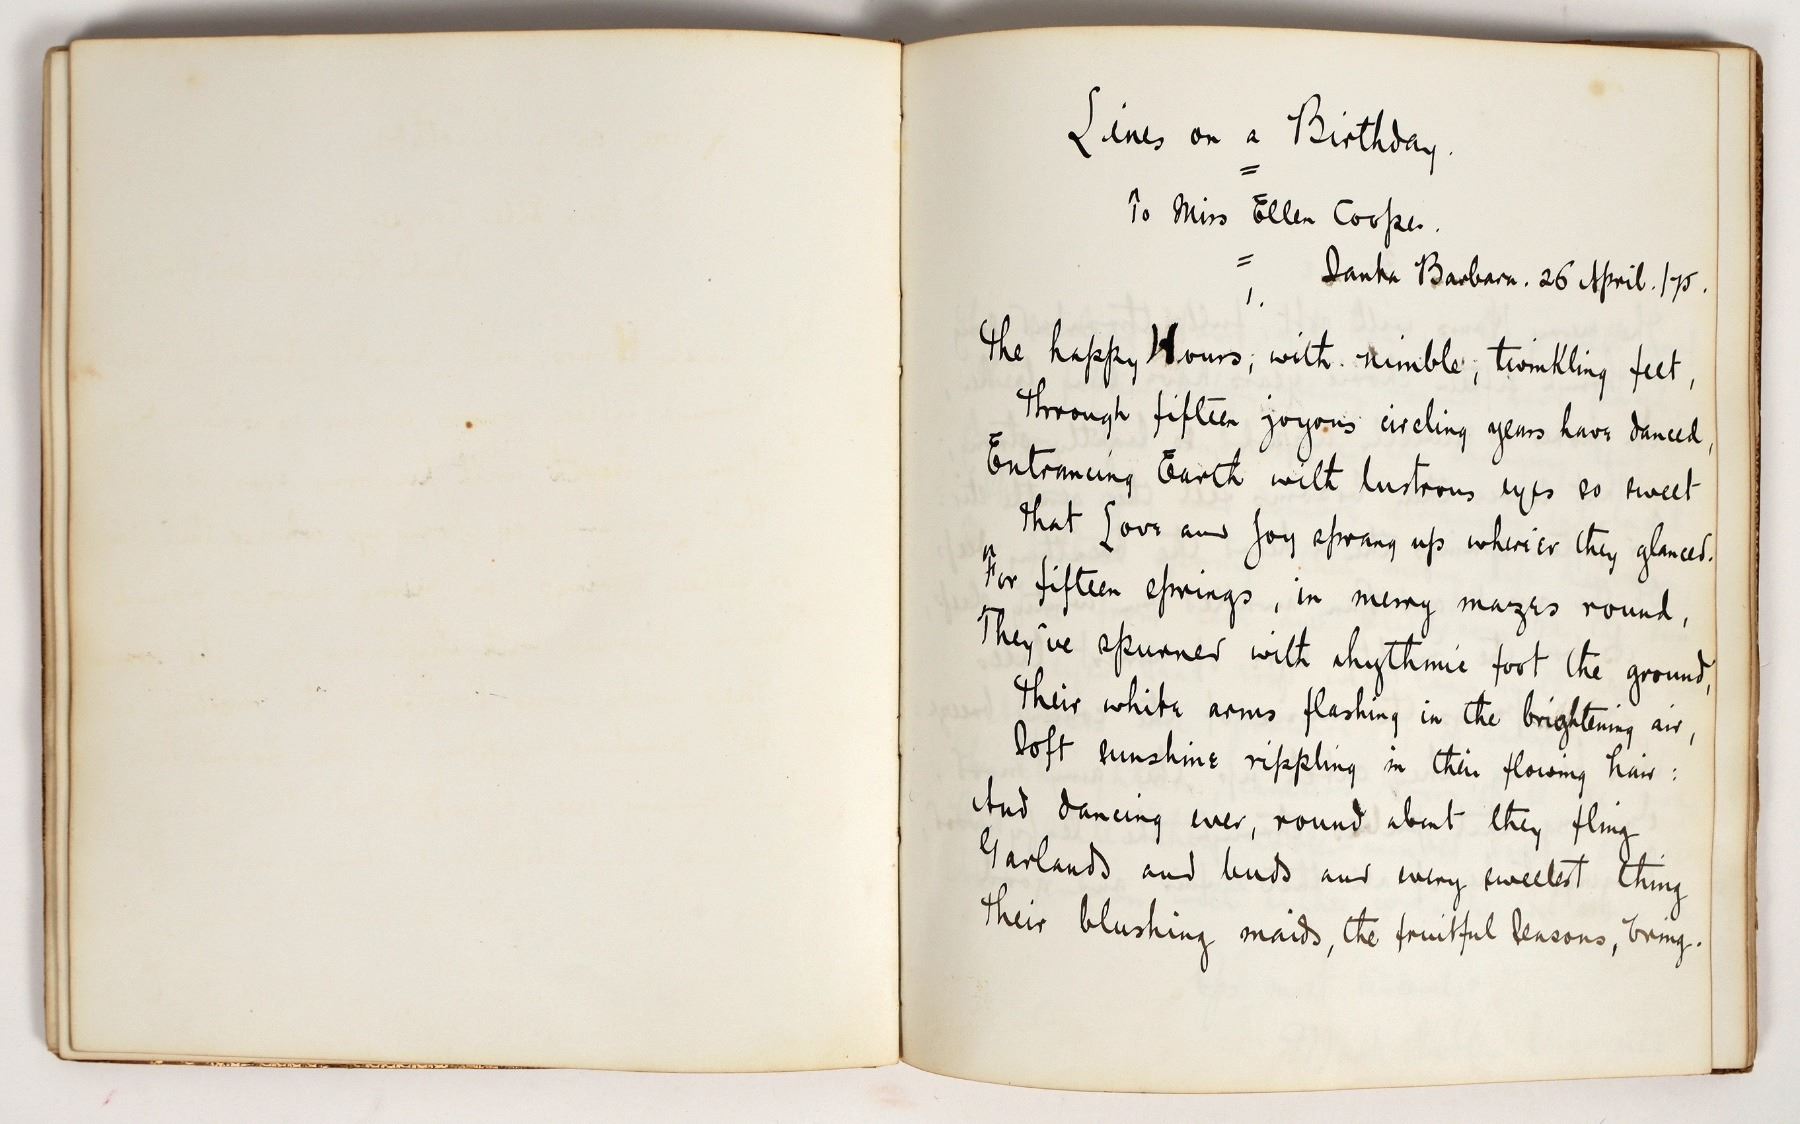 Lines on a Birthday.
=
To Miss Ellen Cooper.
=
Santa Barbara. 26 April. /75.
1.
The happy Hours, with nimble, twinkling feet,
Through fifteen joyous circling years have danced,
Entrancing Earth with lustrous eyes so sweet
That Love and Joy sprang up where'er they glanced.
For fifteen springs, in merry mazes round,
They've spurned with rhythmic foot the ground,
Their white arms flashing in the brightening air,
Soft sunshine rippling in their flowing hair:
And dancing ever, round about they fling
Garlands and buds and every sweetest thing
Their blushing maids, the fruitful Seasons, bring.